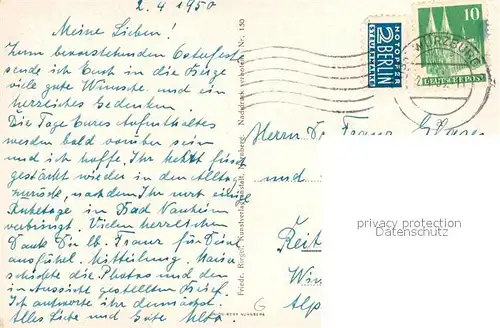 2.4.1950
Meine Lieben!
Zum bevorstehenden Osterfest
sende ich Euch in die Berge
viele gute Wünsche und ein
herzliches Gedenken.
Die Tage Eures Aufenthaltes
werden bald vorüber sein
und ich hoffe, Ihr kehrt
gestärkt wieder in den Alltag
zurück, nachdem Ihr noch einige
Ruhetage in Bad Nauheim
verbringt. Vielen herzlichen
Dank Dir lb. Franz für Deine
ausführl. Mitteilung. Maria
schickte die Photos und den
in Aussicht gestellten Brief.
Ich antworte ihr demnächst.
Alles Liebe und Gute
Friedr. Riegel, Kunstverlagsanstalt, Nürnberg. Nachdruck verboten. Nr. 130
NOTOPFER
2 BERLIN
STEUERMARKE
10
DEUTSCHE POST
WÜRZBURG
Herrn Dr. Franz
und
privacy protection
Datenschutz
Reit
Win
Alp
6